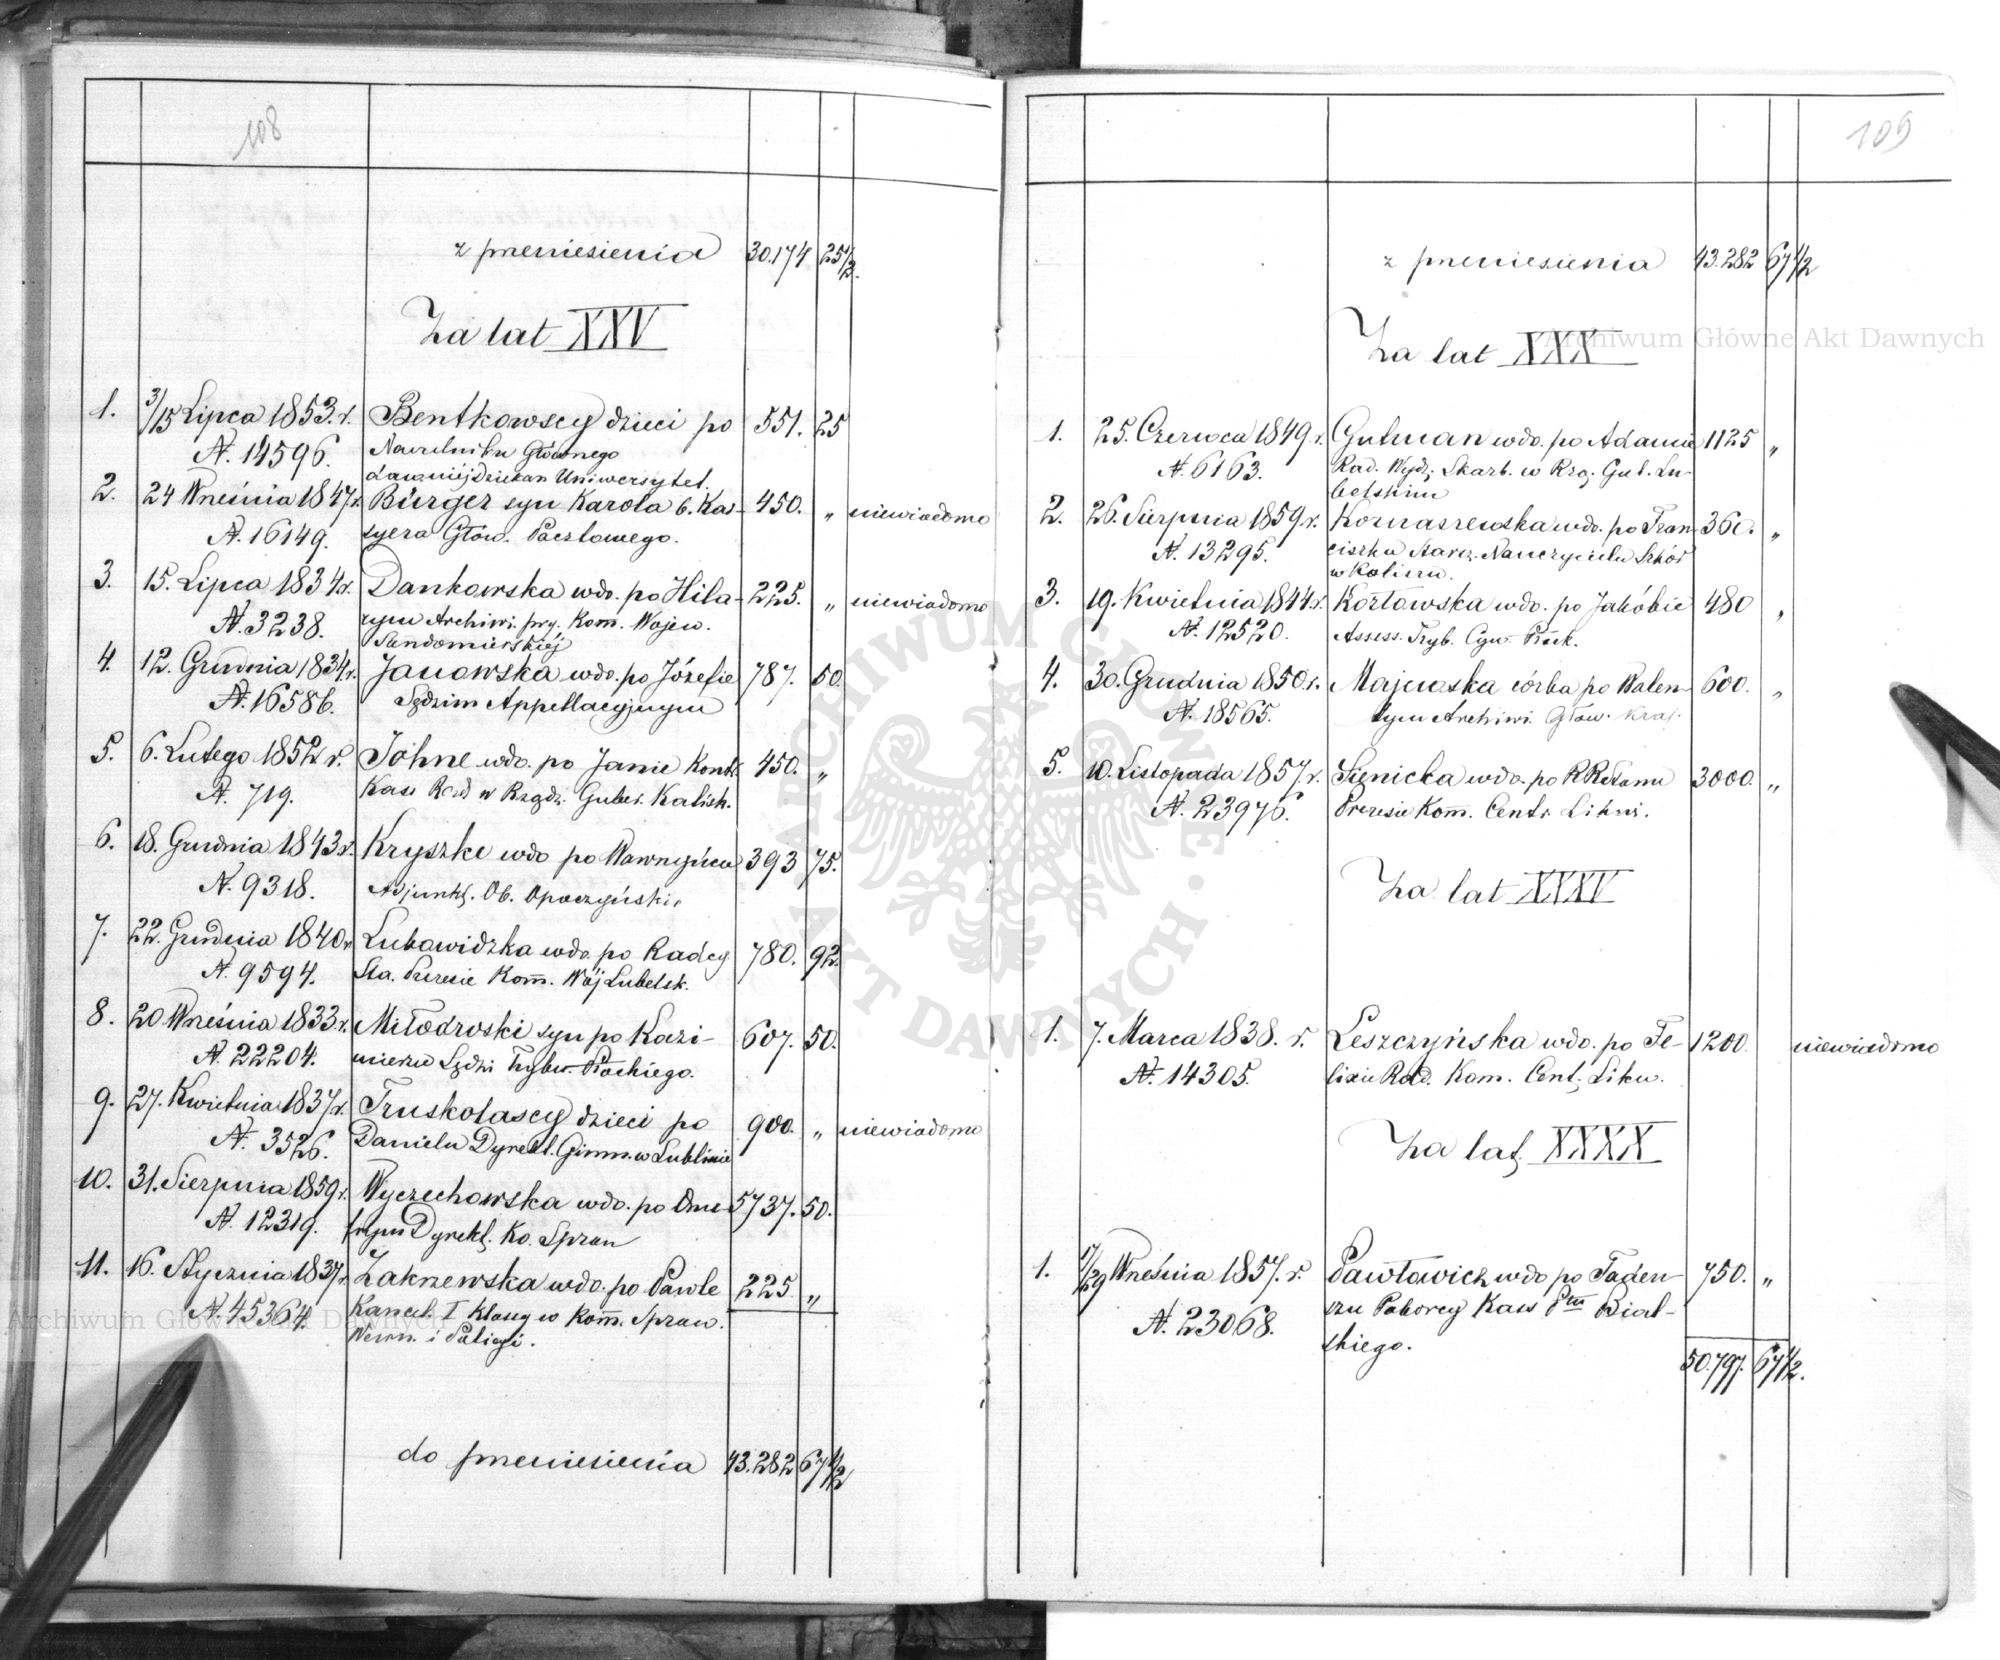 108
z przeniesienia 30.174 25 1/2.
Za lat XXV
1. 3/15 Lipca 1853. r. Bentkowscy dzieci po 551. 25
N. 14596. Naczelniku Głównego
dawniej Dziekan Uniwersytet.
2. 24 Września 1847 r. Bürger syn Karola b. Kas- 450. „ niewiadomo
N. 16149. syera Głów. Pocztowego.
3. 15. Lipca 1834 r. Dankowska wdo. po Hila- 225. „ niewiadomo
N. 3238. rym Archiwi. przy. Kom. Wojew.
Sandomierskiéj
4. 12. Grudnia 1834 r. Janowska wdo. po Józefie 787. 50.
N. 16586. Sędzim Appellacyjnym
5. 6. Lutego 1852 r. John wdo. po Janie Kontr. 450. „
N. 719. Kasi Rząd w Rządz. Guber. Kalish.
6. 18. Grudnia 1843 r. Kryszke wdo po Wawrzyńcu 393 75.
N. 9318. Adjunkt. Ob. Opoczyński.
7. 22. Grudnia 1840 r. Lubowidzka wdo. po Radcy 780. 92.
N. 9594. Sta. Prezesie Kom. Wój Lubelsk.
8. 20 Września 1833. r. Miłodroski syn po Kazi- 607. 50.
N. 22204. mierzu Sędzi Trybu. Płockiego.
9. 27. Kwietnia 1837 r. Truskolascy dzieci po 900. „ niewiadomo
N. 3526. Danielu Dyrekt. Gimn. w Lublinie
10. 31. Sierpnia 1859 r. Wyczechowska wdo. po Ono- 5737. 50.
N. 12319. Dyrekt. Ko. Spraw
11. 16. Stycznia 1837 r. Zakrzewska wdo. po Pawle 225 „
N. 45364. Kancel. I klassy w Kom. Spraw.
Wewn. i Policyi.
do przeniesienia 43.282 67 1/2
109
z przeniesienia 43.282 67 1/2
Za lat XXX
1. 25. Czerwca 1849 r. Gutman wdo. po Adamie 1125 „
N. 6163. Rad. Wydz. Skarb. w Rzą. Gub. Lu-
belskim
2. 26. Sierpnia 1859 r. Kornaszewska wdo. po Fran- 360. „
N. 13295. ciszku Starsz. Nauczycielu Szkół
w Kaliszu.
3. 19. Kwietnia 1844 r. Kozłowska wdo. po Jakóbie 480 „
N. 12520. Assess. Tryb. Cyw. Płock.
4. 30. Grudnia 1850. r. Majewska córka po Walen- 600. „
N. 18565. tym Archiwi. Głów. Kraj.
5. 10. Listopada 1857. r. Sienicka wdo. po 3000. „
N. 23976. Prezesie Kom. Centr. Likwi.
Za lat XXXV
1. 7. Marca 1838. r. Leszczyńska wdo. po Fe- 1200. niewiadomo
N. 14305. lixie Rad. Kom. Cent. Likw.
Za lat XXXX
1. 17/29 Września 1857. r. Pawłowicz wdo po Tadeu- 750. „
N. 23068. szu Poborcy Kassy Ptu Bial-
skiego.
50.797. 67 1/2.
Archiwum Główne Akt Dawnych
Archiwum Główne Akt Dawnych
ARCHIWUM GŁÓWNE AKT DAWNYCH